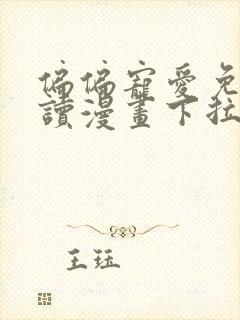 偏偏寵愛免
讀漫畫下拉
王珏